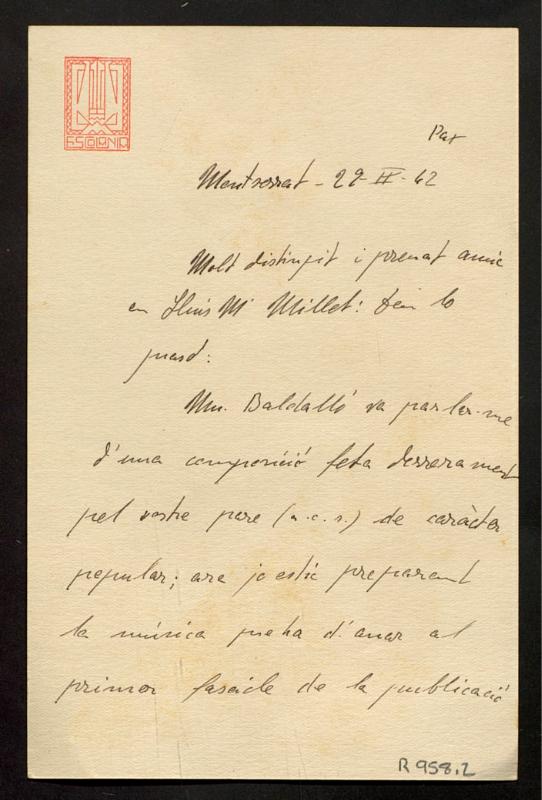 ESCOLANIA
Pax
Montserrat - 22-II-42
Molt distingit i preuat amic
en Lluís Mª Millet: Déu lo
guard:
Mn. Baldelló va parlar-me
d'una composició feta darrerament
pel vostre pare (a. c. s.) de caràcter
popular; ara jo estic preparant
la música que ha d'anar al
primer fascicle de la publicació
R 958,2